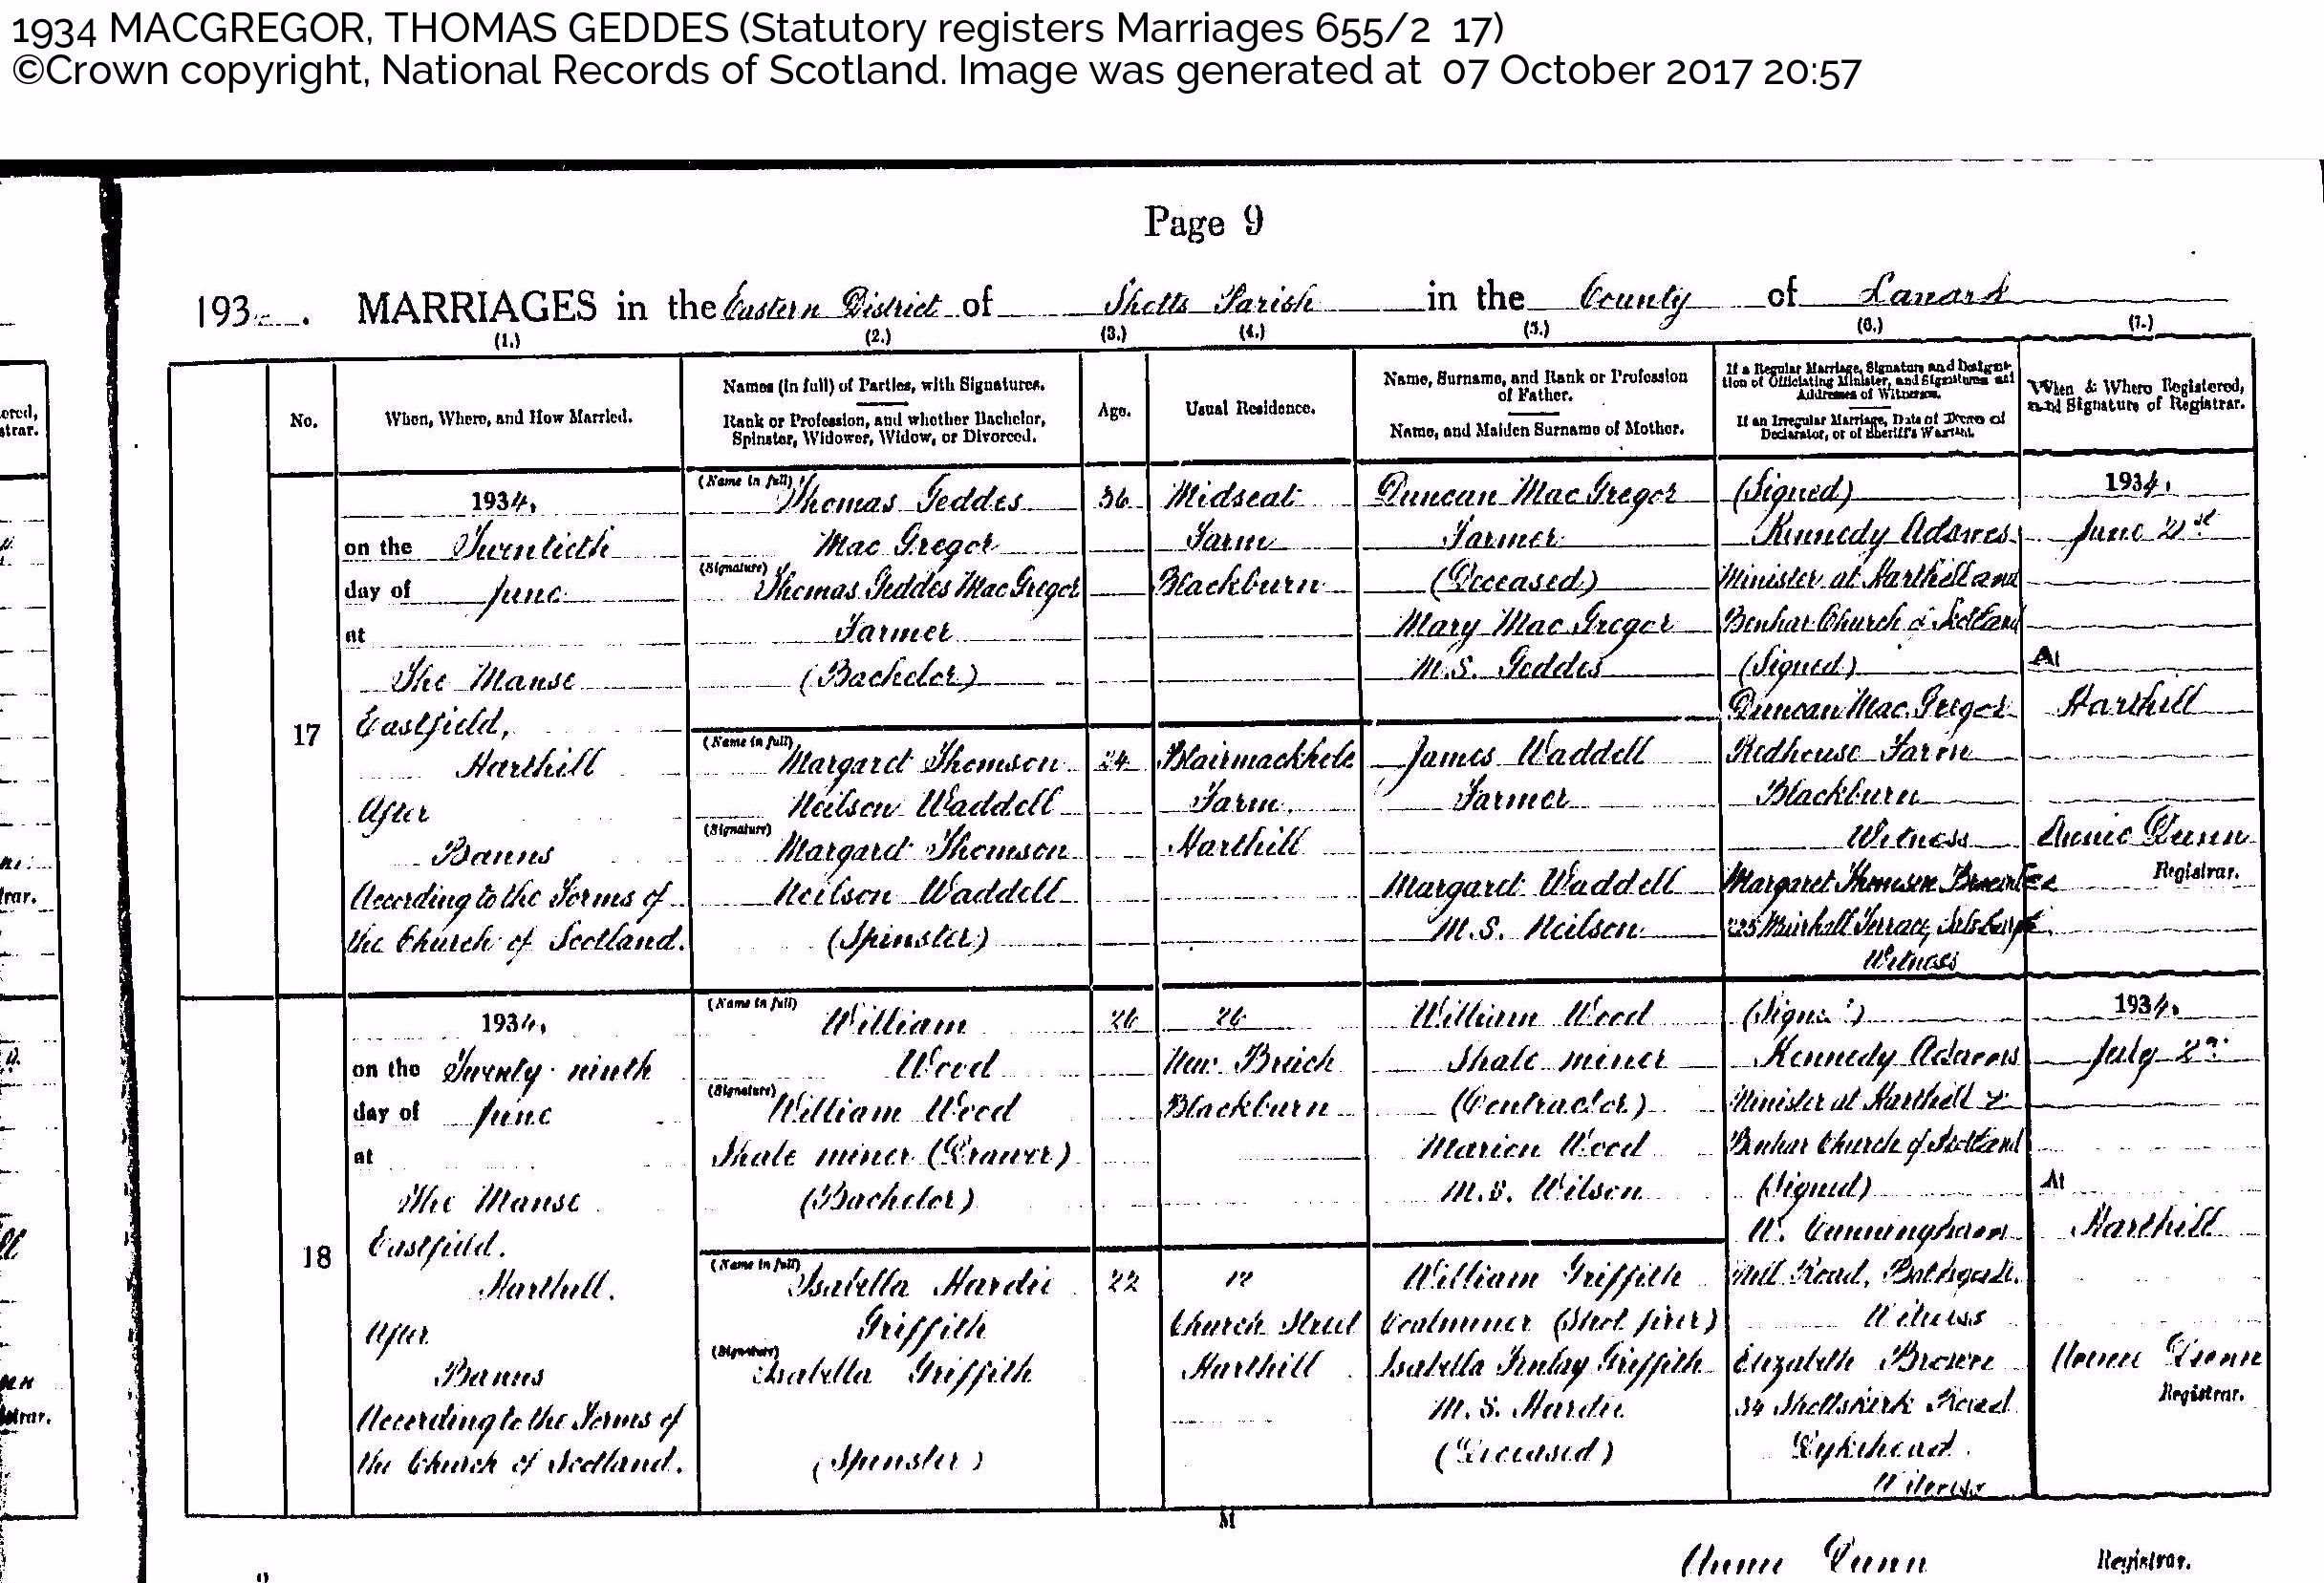 1934 MACGREGOR, THOMAS GEDDES (Statutory registers Marriages 655/2 17)
©Crown copyright, National Records of Scotland. Image was generated at 07 October 2017 20:57
Page 9
193 . MARRIAGES in the Eastern District of Shotts Parish in the County of Lanark
(1.) (2.) (3.) (4.) (5.) (6.) (7.)
No.
When, Where, and How Married.
Names (in full) of Parties, with Signatures.
Rank or Profession, and whether Bachelor,
Spinster, Widower, Widow, or Divorced.
Age.
Usual Residence.
Name, Surname, and Rank or Profession
of Father.
Name, and Maiden Surname of Mother.
If a Regular Marriage, Signature and Designa-
tion of Officiating Minister, and Signatures and
Addresses of Witnesses.
If an Irregular Marriage, Date of Decree of
Declarator, or of Sheriff's Warrant.
When & Where Registered,
and Signature of Registrar.
17
1934,
on the Twentieth
day of June
at
The Manse
Eastfield,
Harthill
After
Banns
According to the Forms of
the Church of Scotland.
(Name in full)
Thomas Geddes
Mac Gregor
(Signature)
Thomas Geddes MacGregor
Farmer
(Bachelor)
36
Midseat
Farm
Blackburn
Duncan MacGregor
Farmer
(Deceased)
Mary MacGregor
M.S. Geddes
(Name in full)
Margaret Thomson
Neilson Waddell
(Signature)
Margaret Thomson
Neilson Waddell
(Spinster)
24
Blairmuckhole
Farm,
Harthill
James Waddell
Farmer
Margaret Waddell
M.S. Neilson
(Signed)
Kennedy Adames
Minister at Harthill and
Benhar Church of Scotland
(Signed)
Duncan MacGregor
Redhouse Farm
Blackburn
Witness
Margaret Thomson Brownlee
Muirhall Terrace, Salsburgh
Witness
1934,
June 21st
At
Harthill
Annie Dunn
Registrar.
18
1934,
on the Twenty-ninth
day of June
at
The Manse
Eastfield.
Harthill.
After
Banns
According to the Forms of
the Church of Scotland.
(Name in full)
William
Wood
(Signature)
William Wood
Shale miner (Drawer)
(Bachelor)
26
26
New Breich
Blackburn
William Wood
Shale miner
(Contractor)
Marion Wood
M.S. Wilson
(Name in full)
Isabella Hardie
Griffith
(Signature)
Isabella Griffith
(Spinster)
22
12
Church Street
Harthill
William Griffith
Coalminer (Shot firer)
Isabella Finlay Griffith
M.S. Hardie
(Deceased)
(Signed)
Kennedy Adames
Minister at Harthill &
Benhar Church of Scotland
(Signed)
W. Cunningham
Mill Road, Bathgate.
Witness
Elizabeth Brown
34 Shottskirk Road
Dykehead.
Witness
1934,
July 2nd
At
Harthill
Annie Dunn
Registrar.
M
Annie Dunn Registrar.